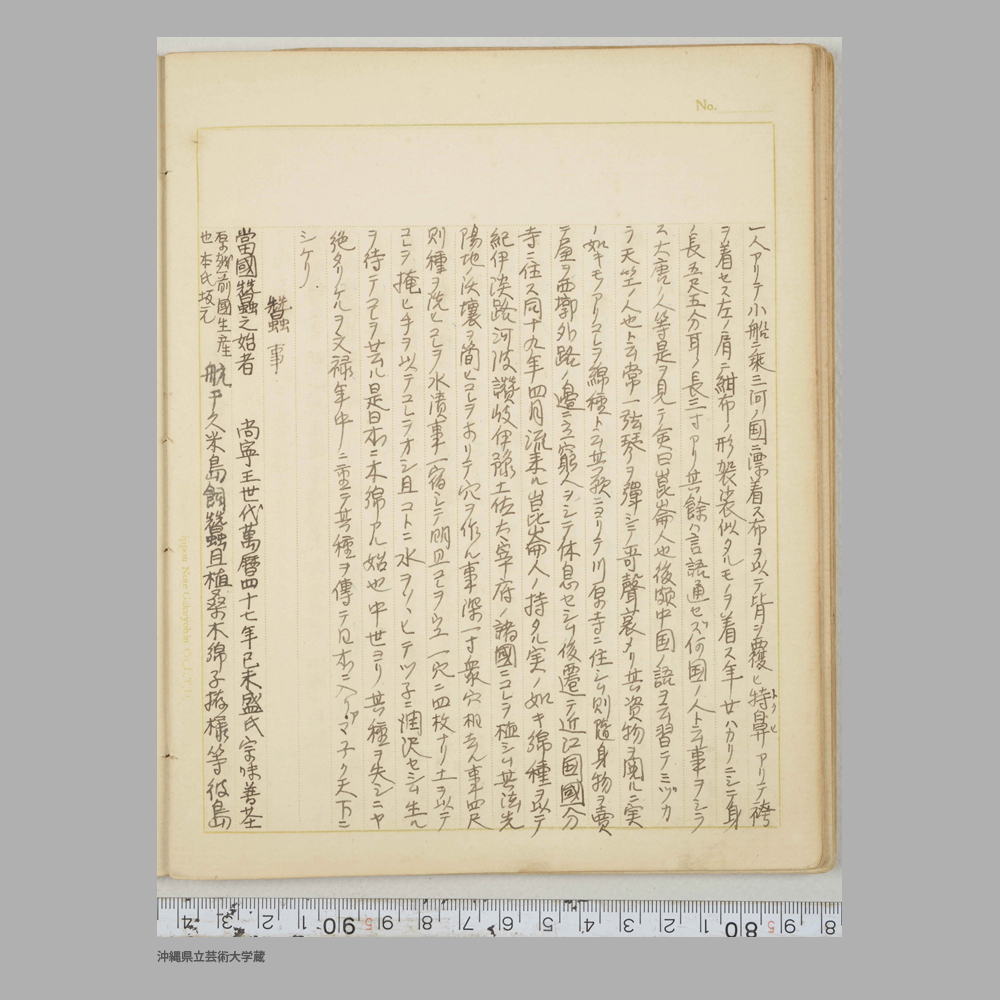 No.
一人アリテ小船ニ乗三河ノ国ニ漂着ス布ヲ以テ背ヲ覆ヒ特鼻アリテ袴
トクヒ
ヲ着セス左ノ肩ニ紺布ノ形袈裟似タルモノヲ着ス年廿ハカリニシテ身
ノ長五尺五分耳ノ長三寸アリ其餘ハ言語通セズ何国ノ人ト云事ヲシラ
ス大唐ノ人等是ヲ見テ僉曰崑崙人也後頗中国ノ語ヲ習テミヅカ
ラ天竺ノ人也ト云常一弦琴ヲ彈シテ哥聲哀ナリ其資物ヲ閲ルニ実
ノ如キモノアリコレヲ綿種ト云其願ニヨリテ川原寺ニ住シム則隨身物ヲ賣
テ屋ヲ西郭外路ノ邉ニ立窮人ヲシテ休息セシム後遷テ近江国國分
寺ニ住ス同十九年四月流来ル崑崙人ノ持タル実ノ如キ綿種ヲ以テ
紀伊淡路河波讃岐伊豫土佐太宰府ノ諸國ニコレヲ植シム其法先
陽地ノ沃壤ヲ簡ヒコレヲホリテ穴ヲ作ル事深一寸衆穴相去ル事四尺
則種ヲ洗ヒコレヲ水漬事一宿シテ明旦コレヲウエ一穴ニ四枚ナリ土ヲ以テ
コレヲ掩ヒ手ヲ以テコレヲオシ且コトニ水ヲソヽヒテツ子ニ潤沢セシム生ル
ヲ待テコレヲ芸ル是日本ニ木綿アル始也中世ヨリ其種ヲ失シニヤ
絶タリケルヲ文禄年中ニ重テ其種ヲ傳テ日本ニ入アマ子ク天下ニ
シケリ.
蠶事
當國蠶之始者 尚寧王世代萬暦四十七年己未盛氏宗味善荃
原越前國生産
也本氏坂元
航于久米島飼蠶且植桑木綿子等彼島
沖縄県立芸術大学蔵